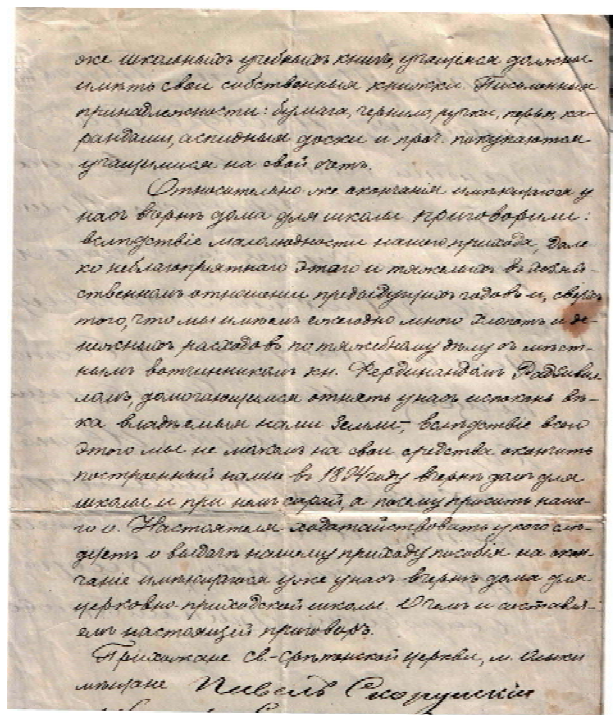 же школьныхъ учебныхъ книгъ, учащіеся должны
имѣть свои собственныя книжки. Письменныя
принадлежности: бумага, чернила, ручки, перья, ка-
рандаши, аспидныя доски и проч. покупаются
учащимися на свой счетъ.
Относительно же окончанія имѣющагося у
насъ вчернѣ дома для школы приговорили:
вслѣдствіе малолюдности нашего прихода, дале
ко неблагопріятнаго этаго и тяжелыхъ въ хозяй-
ственномъ отношеніи предыдущихъ годовъ и, сверхъ
того, что мы имѣемъ ежегодно много хлопотъ и де-
нежныхъ расходовъ по тяжебному дѣлу съ мѣст-
нымъ вотчинникомъ кн. Фердинандомъ Радзиви
ломъ, домогающимся отнять у насъ испоконъ вѣ-
ка владѣемыя нами земли, вслѣдствіе всего
этого мы не можемъ на свои средства окончить
построенный нами въ году вчернѣ домъ для
школы и при немъ сарай, а посему просить наше-
го о. Настоятеля ходатайствовать у кого слѣ-
дуетъ о выдачѣ нашему приходу пособія на окон-
чаніе имѣющагося уже у насъ вчернѣ дома для
церковно приходской школы. О чемъ и составля-
емъ настоящій приговоръ.
Прихожане св.-Срѣтенской церкви, м.
мѣщане Павелъ